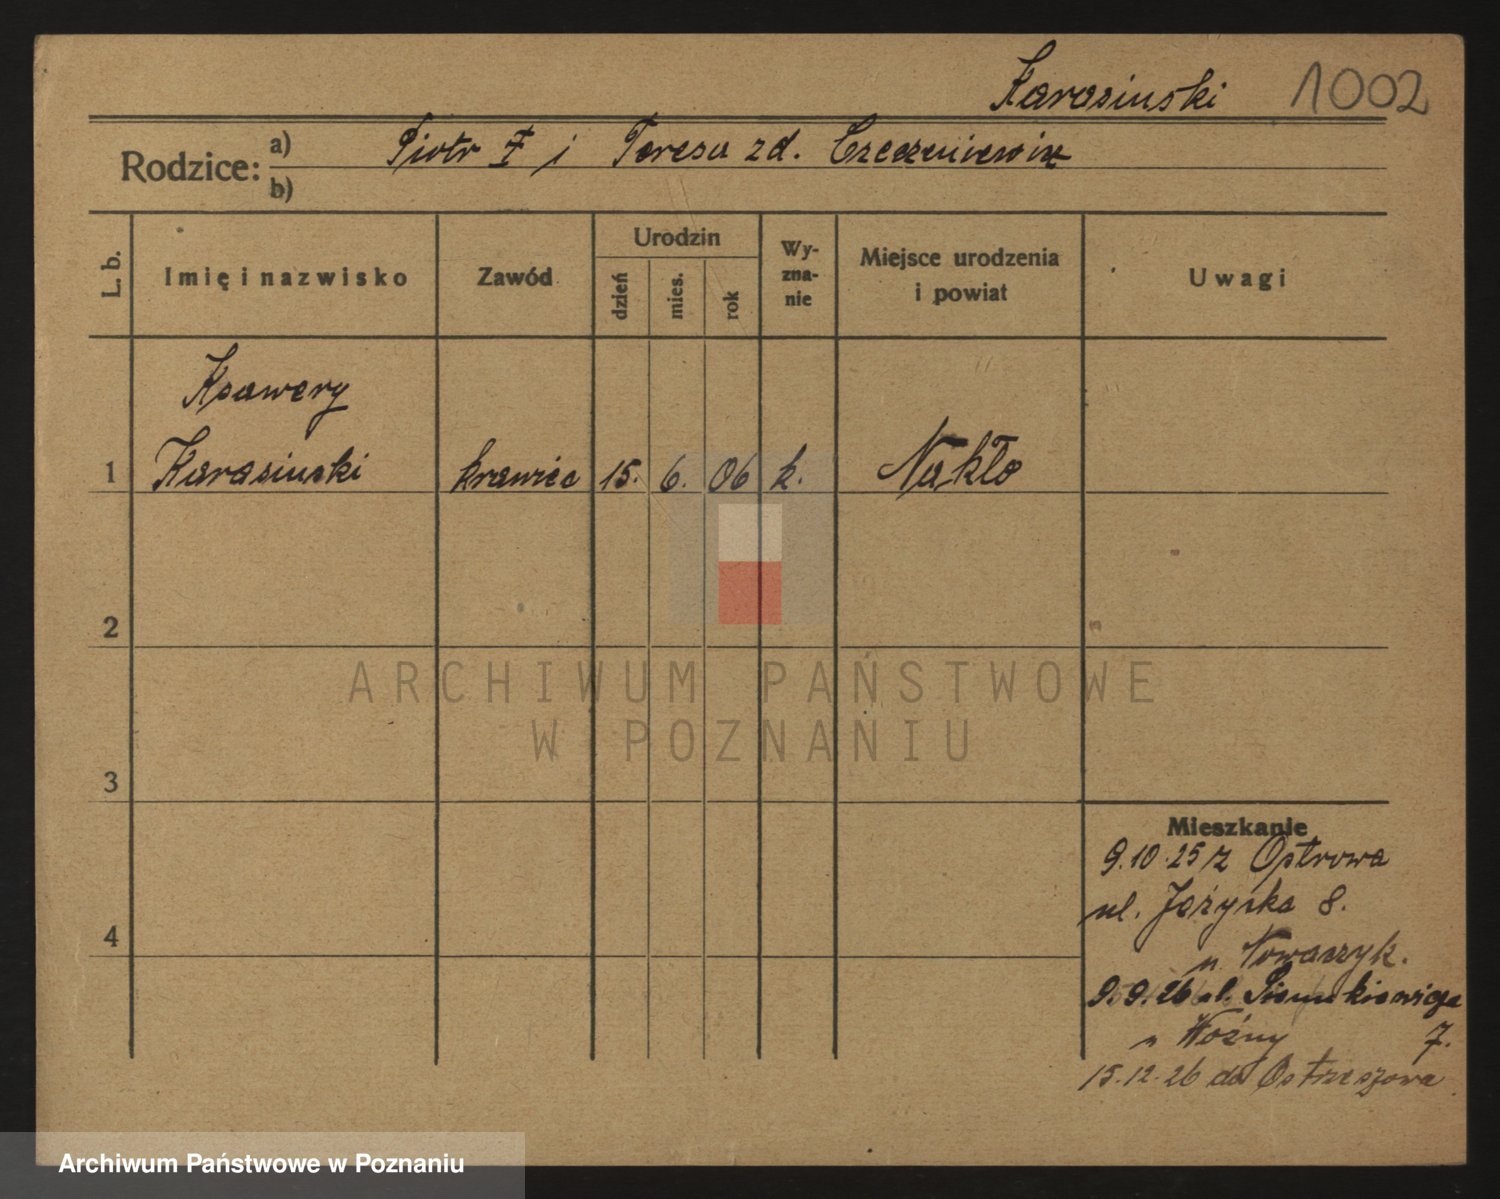 Karasinski 1002
Rodzice:
a) Piotr ‡ i Teresa zd. Czeczeniewicz
b)
L. b.
Imię i nazwisko
Zawód
Urodzin
dzień
mies.
rok
Wy-
zna-
nie
Miejsce urodzenia
i powiat
Uwagi
Ksawery
1 Karasinski krawiec 15. 6. 06 k. Nakło
2
ARCHIWUM PAŃSTWOWE
W POZNANIU
3
Mieszkanie
9.10.25 z Ostrowa
ul. Jeżycka 8.
4
u Nowaczyk.
9.9.26 ul. Sienkiewicza
u Woźny 7.
15.12.26 do Ostrzeszowa
Archiwum Państwowe w Poznaniu